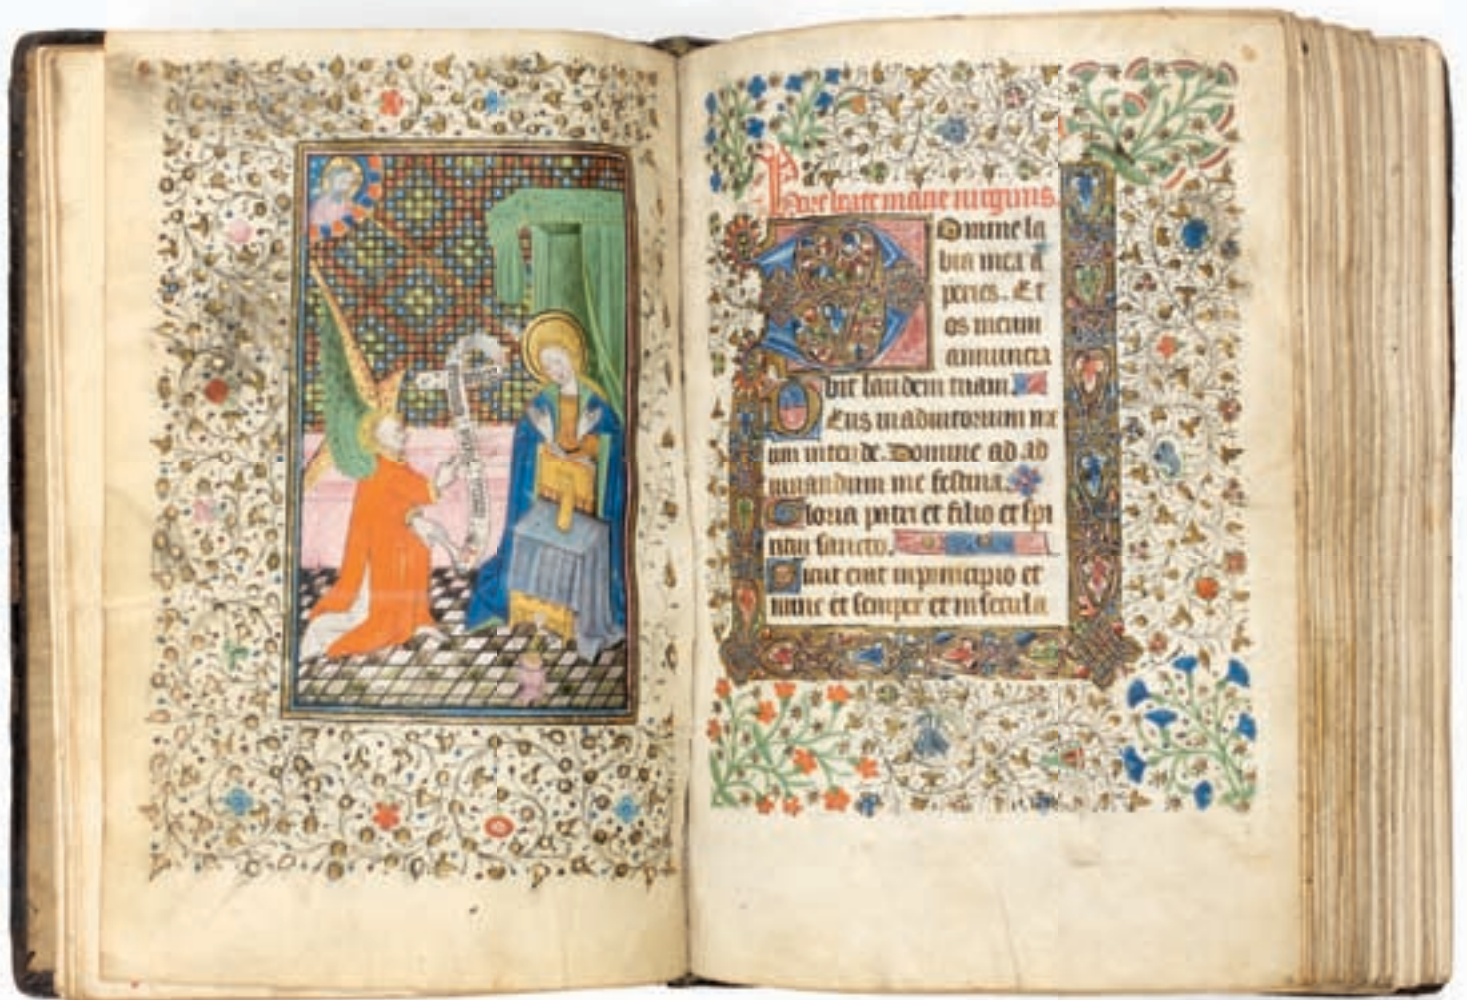 Hore beate marie virginis.
Domine la
bia mea a
peries. Et
os meum
annuncia
bit laudem tuam.
Deus in adiutorium me
um intende. Domine ad ad
iuuandum me festina.
Gloria patri et filio et spi
ritui sancto.
Sicut erat in principio et
nunc et semper et in secula